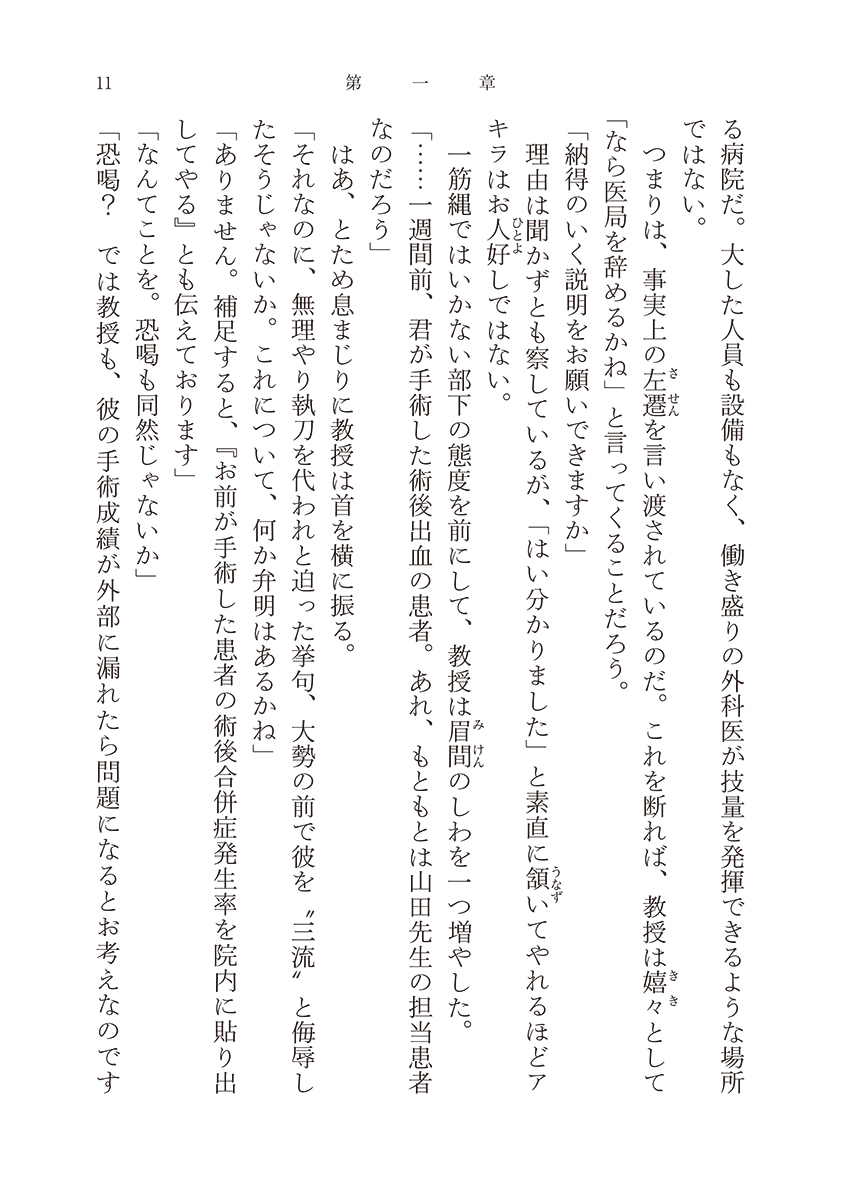 11
第一章
る病院だ。大した人員も設備もなく、働き盛りの外科医が技量を発揮できるような場所
ではない。
つまりは、事実上の左遷を言い渡されているのだ。これを断れば、教授は嬉々として
「なら医局を辞めるかね」と言ってくることだろう。
「納得のいく説明をお願いできますか」
理由は聞かずとも察しているが、「はい分かりました」と素直に頷いてやれるほどア
キラはお人好しではない。
一筋縄ではいかない部下の態度を前にして、教授は眉間のしわを一つ増やした。
「……一週間前、君が手術した術後出血の患者。あれ、もともとは山田先生の担当患者
なのだろう」
はあ、とため息まじりに教授は首を横に振る。
「それなのに、無理やり執刀を代われと迫った挙句、大勢の前で彼を〝三流〟と侮辱し
たそうじゃないか。これについて、何か弁明はあるかね」
「ありません。補足すると、『お前が手術した患者の術後合併症発生率を院内に貼り出
してやる』とも伝えております」
「なんてことを。恐喝も同然じゃないか」
「恐喝？　では教授も、彼の手術成績が外部に漏れたら問題になるとお考えなのです